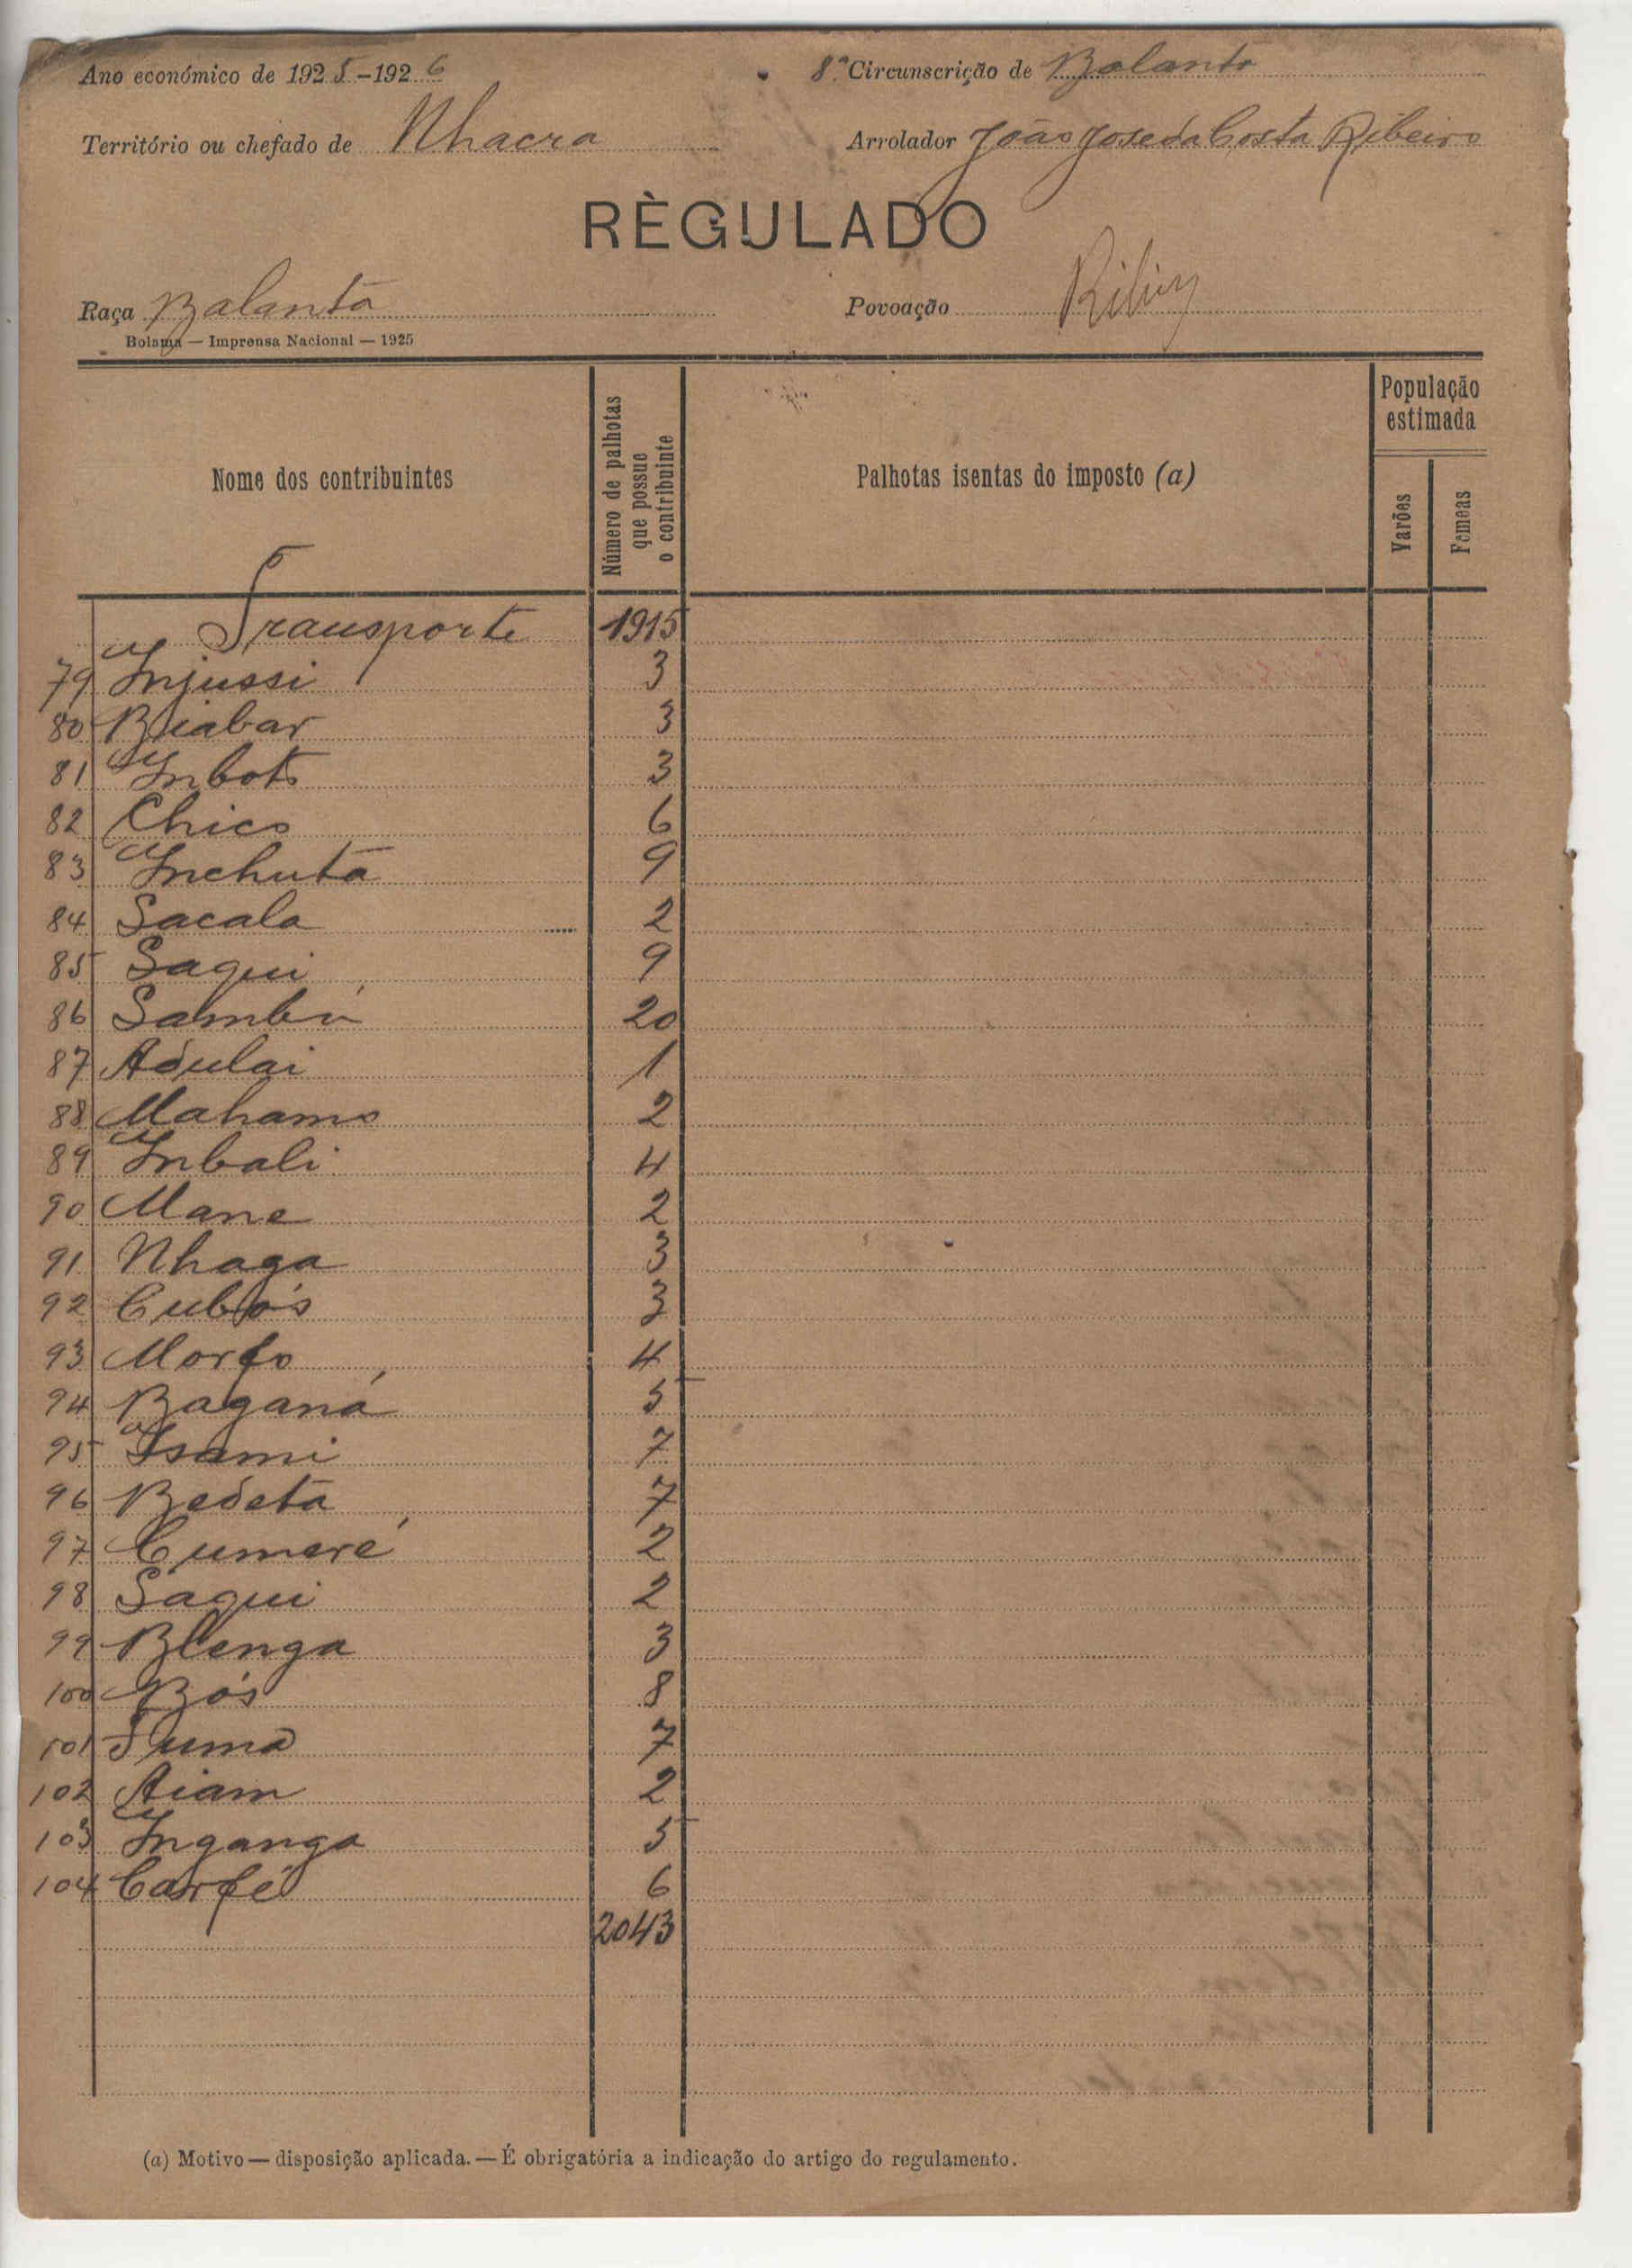 Ano económico de 1925-1926
8ª Circunscrição de Balanta
Território ou chefado de Nhacra
Arrolador João José da Costa Ribeiro
RÈGULADO
Raça Balanta
Povoação
Bolama — Imprensa Nacional — 1925
Nome dos contribuintes
Número de palhotas que possue o contribuinte
Palhotas isentas do imposto (a)
População estimada
Varões
Femeas
Transporte 1915
79 Injussi 3
80 Biabar 3
81 Inbots 3
82 Chico 6
83 Inchuta 9
84 Sacala 2
85 Saqui 9
86 Sambú 20
87 Adulai 1
88 Mahamo 2
89 Inbali 4
90 Mane 2
91 Nhaga 3
92 Cubós 3
93 Morfo 4
94 Baganá 5
95 Isami 7
96 Bedeta 7
97 Cumeré 2
98 Saqui 2
99 Blenga 3
100 Bós 8
101 Suma 7
102 Aiam 2
103 Inganga 5
104 Carfé 6
2043
(a) Motivo — disposição aplicada. — É obrigatória a indicação do artigo do regulamento.